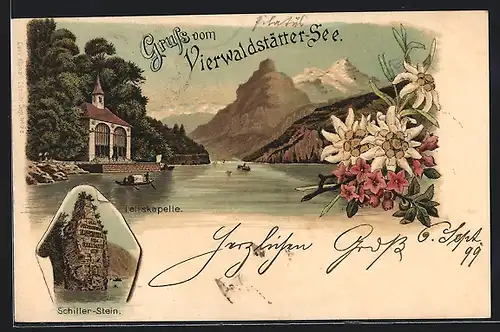 Pilatus
Gruß vom
Vierwaldstätter-See.
Tellskapelle.
Herzlichen Gruß 6. Sept.
99
Schiller-Stein.